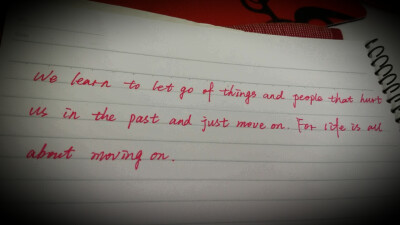 We learn to let go of things and people that hurt
us in the past and just move on. For life is all
about moving on.